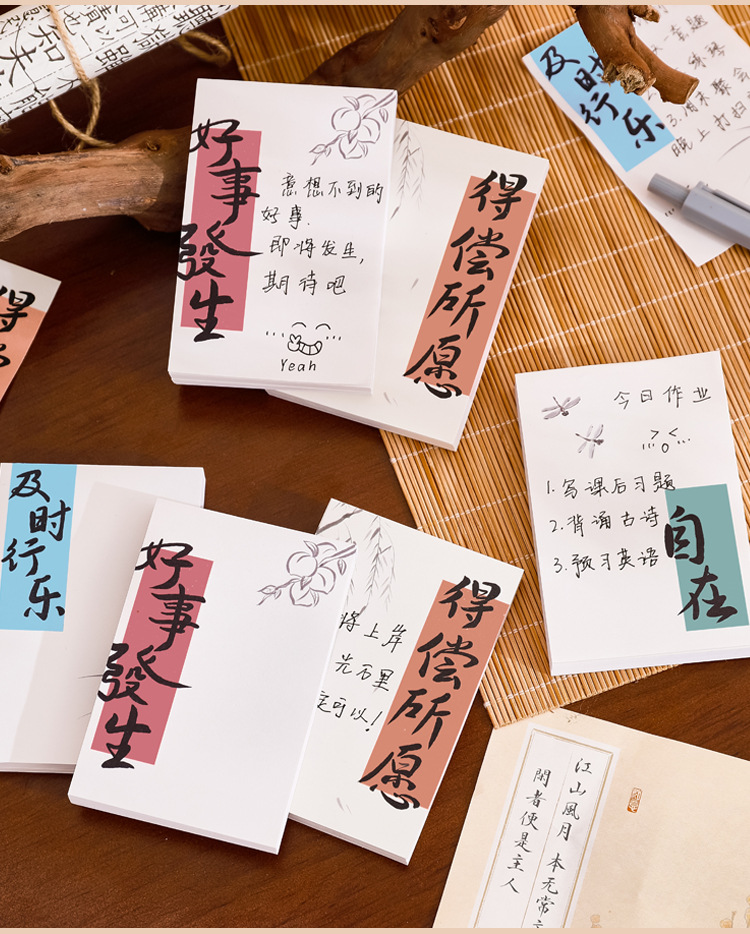 好事
發生
意想不到的
好事.
即将发生,
期待吧
Yeah
得偿所愿
及时
行乐
3.周末聚会
晚上打扫
得
今日作业
1.写课后习题
2.背诵古诗
3.预习英语
自在
及时
行乐
好事
發生
将上岸
光万里
定可以!
得偿所愿
江山風月 本无常
閑者便是主人